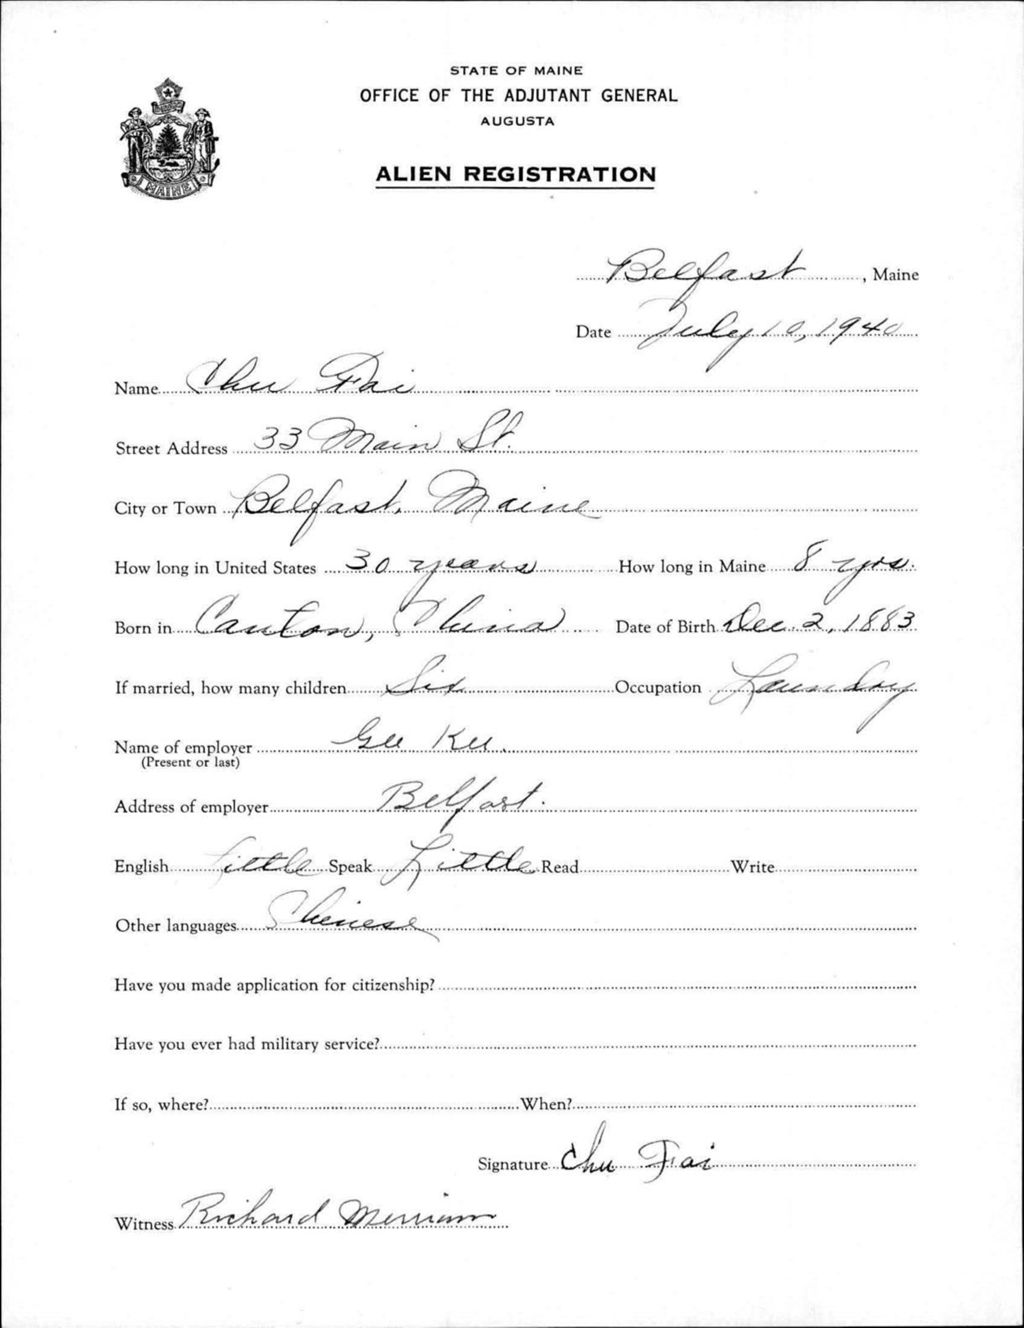 STATE OF MAINE
OFFICE OF THE ADJUTANT GENERAL
AUGUSTA
ALIEN REGISTRATION
MAINE
Belfast, Maine
Date July 10, 1940
Name Chu Fai
Street Address 33 Main St.
City or Town Belfast, Maine
How long in United States 30 years How long in Maine 8 yrs.
Born in Canton, China Date of Birth Dec. 2, 1883
If married, how many children Six Occupation Laundry
Name of employer Gee Kee.
(Present or last)
Address of employer Belfast.
English Little Speak Little Read Write
Other languages Chinese
Have you made application for citizenship?
Have you ever had military service?
If so, where? When?
Signature Chu Fai
Witness Richard Merriam